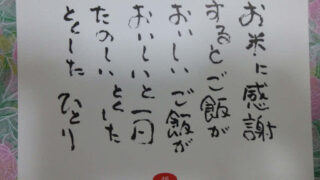 お米に感謝
するとご飯が
おいしいご飯が
おいしいと一日
たのしいとくした
とくした ひとり